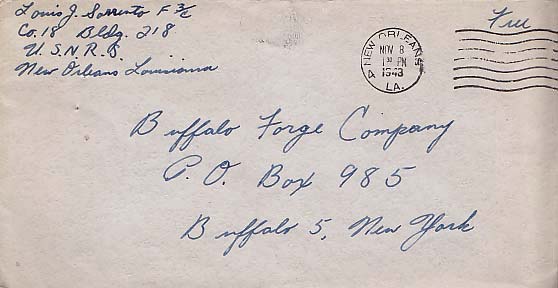 Louis J. Sorrento F 3/c
Co. 18 Bldg. 218
U.S.N.R.S.
New Orleans Louisiana
Free
NEW ORLEANS
NOV 8
1 30 PM
1943
4
LA.
Buffalo Forge Company
P.O. Box 985
Buffalo 5, New York